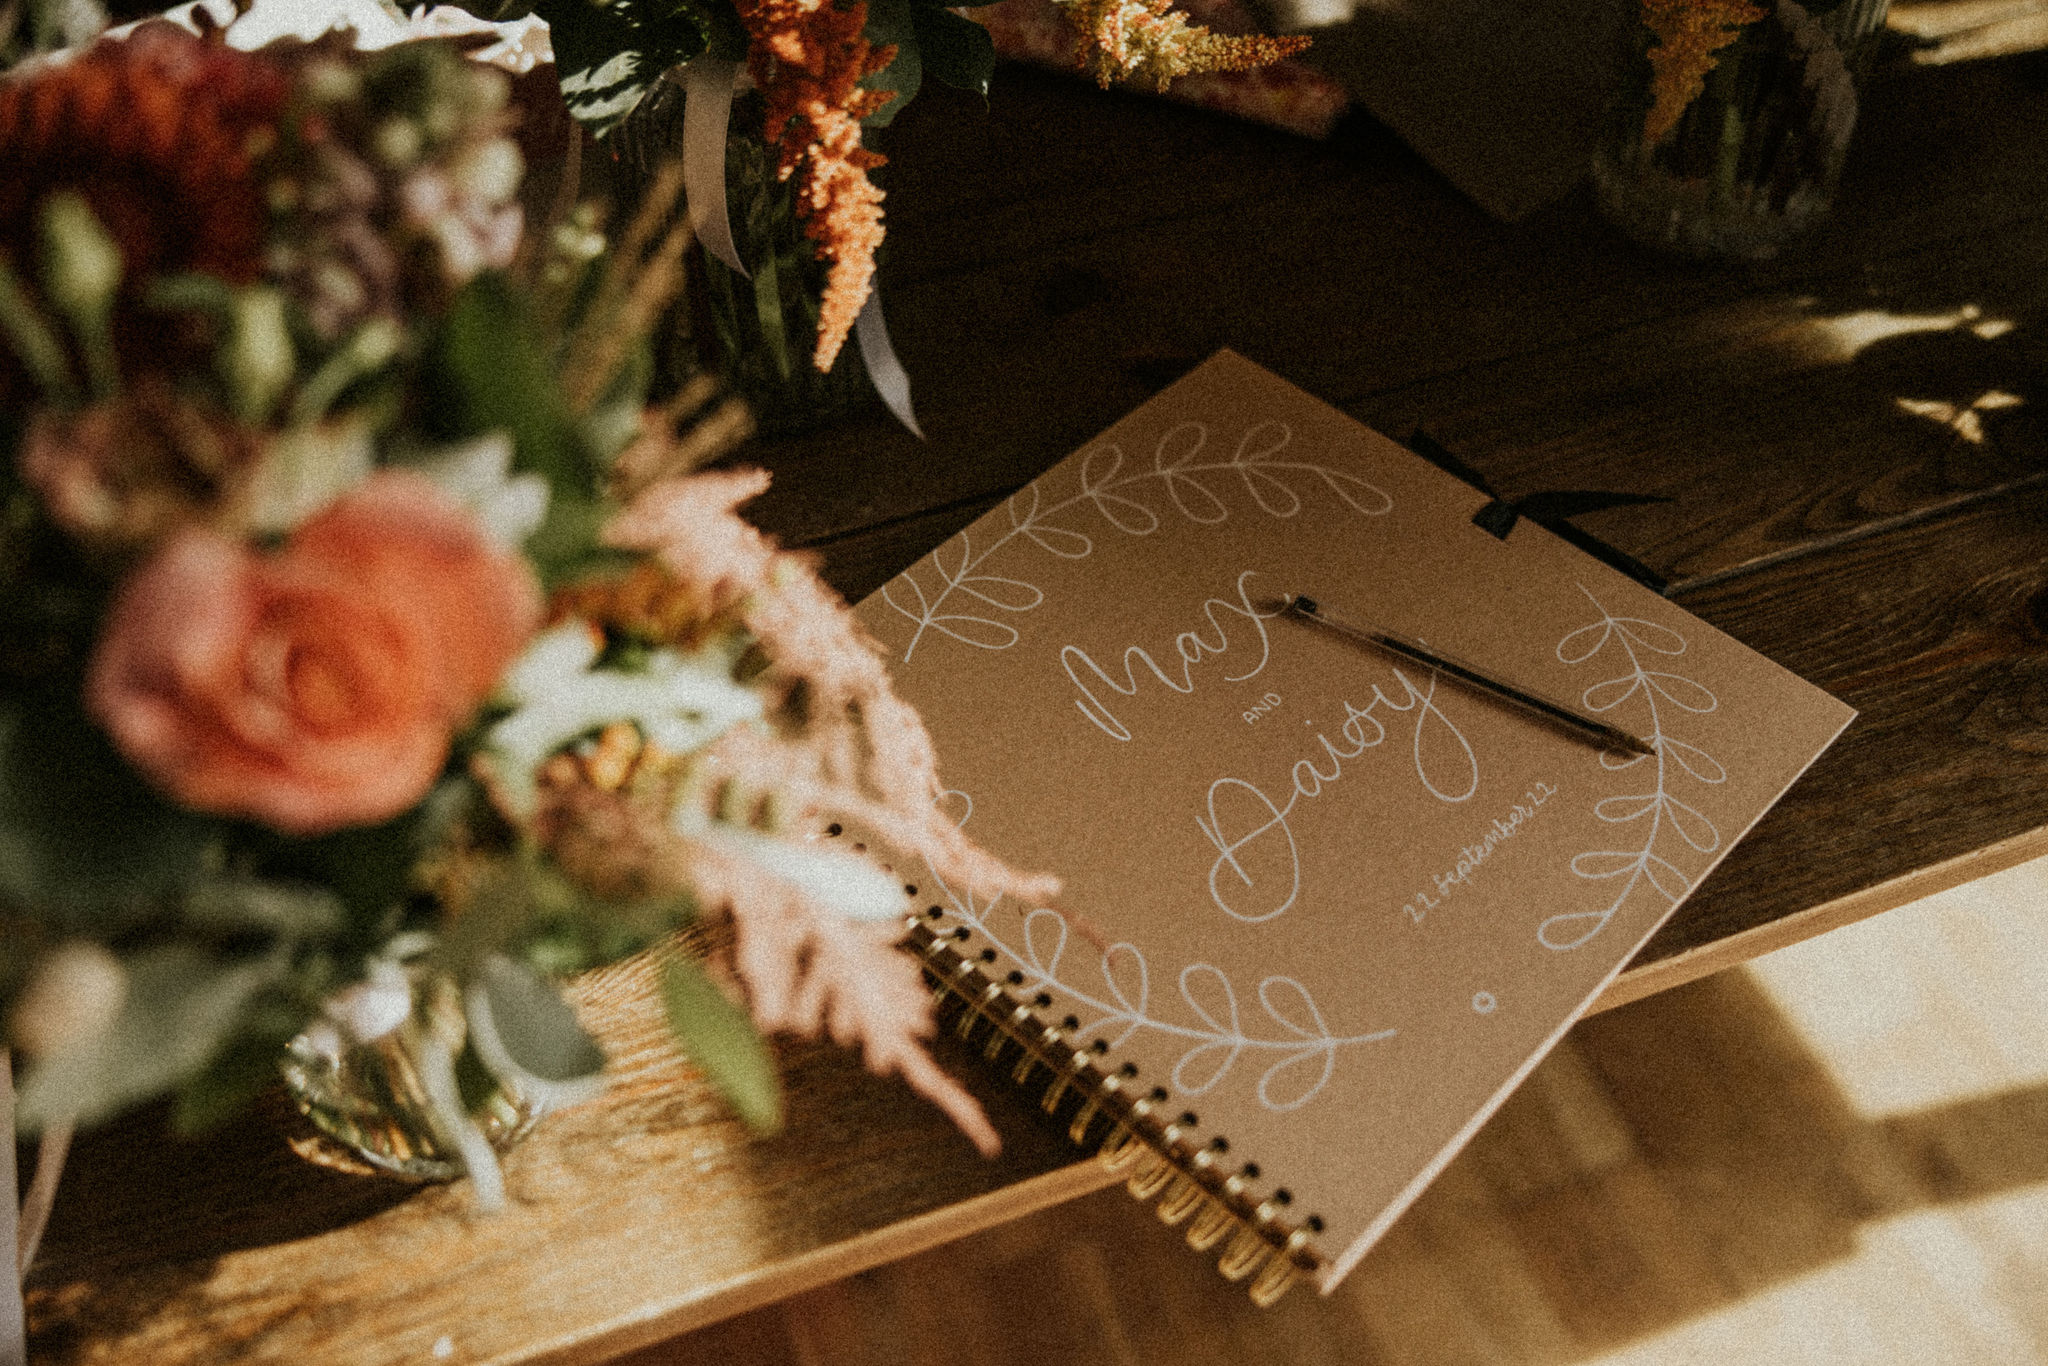 Max
AND
Daisy
22. September. 22